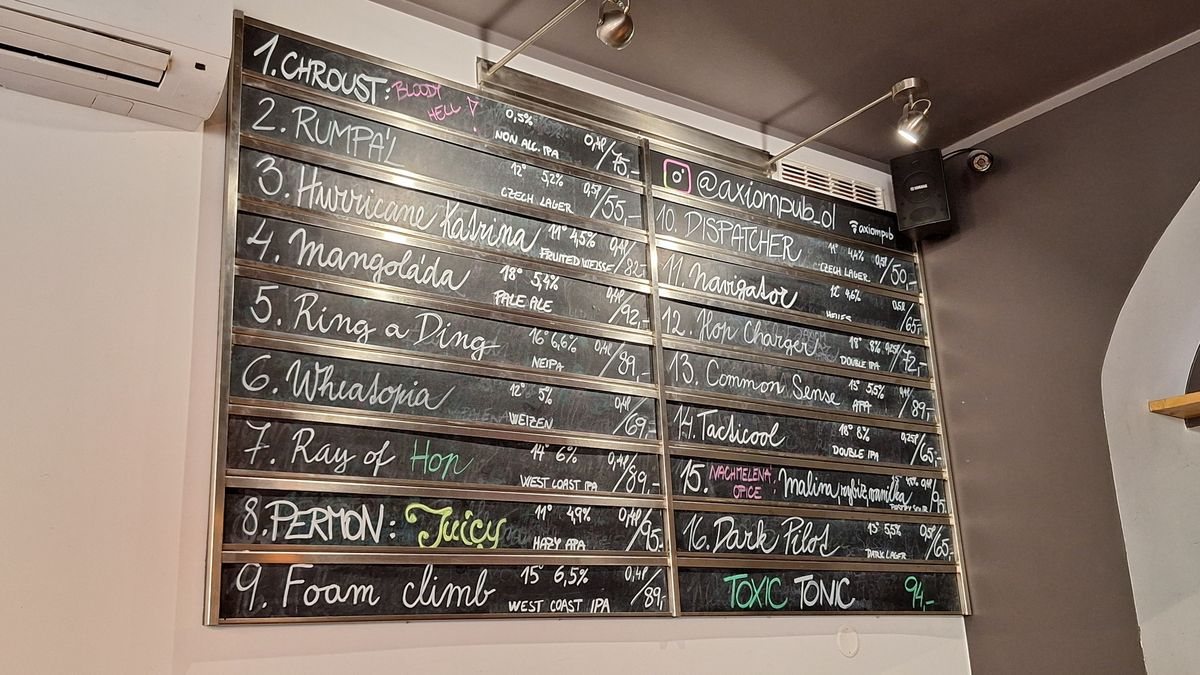 1. CHROUST: BLOODY HELL! 0,5% 0,4l/75,-
NON ALC. IPA
2. RUMPA'L 12° 5,2% 0,5l/55,-
CZECH LAGER
3. Hurricane Katrina 11° 4,5% 0,4l/82,-
FRUITED WEISSE
4. Mangoláda 18° 5,4% 0,4l/92,-
PALE ALE
5. Ring a Ding 16° 6,6% 0,4l/89,-
NEIPA
6. Wheatopia 12° 5% 0,4l/69,-
WEIZEN
7. Ray of Hop 14° 6% 0,4l/89,-
WEST COAST IPA
8. PERMON: Juicy 11° 4,9% 0,4l/95,-
HAZY APA
9. Foam climb 15° 6,5% 0,4l/89,-
WEST COAST IPA
@axiompub_ol axiompub
10. DISPATCHER 11° 4,4% 0,5l/50,-
CZECH LAGER
11. Navigator 12° 4,6% 0,5l/65,-
HELLES
12. Hop Charger 18° 8% 0,25l/72,-
DOUBLE IPA
13. Common Sense 15° 5,5% 0,4l/89,-
APA
14. Tacticool 18° 8% 0,25l/65,-
DOUBLE IPA
15. NACHMELENÁ OPICE Malina, rybíz, vanilka
PASTRY SOUR
16. Dark Pilot 13° 5,5% 0,5l/65,-
DARK LAGER
TOXIC TONIC 94,-
YAMAHA